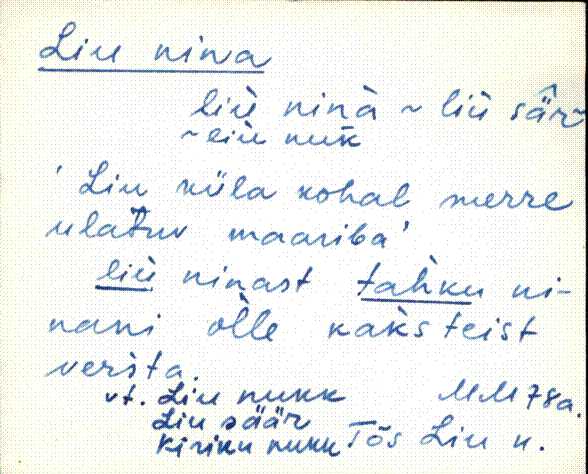 Liu nina
liù ninà ~ liù sä̂r
~ liu nuk̀
' Liu küla kohal merre
ulatuv maariba'
liù ninast tah̀ku ni-
nani òlle kak̀steist
versta.
vt. Liu nukk MM 78a.
Liu säär
Kiriku nukk Tõs Liu k.